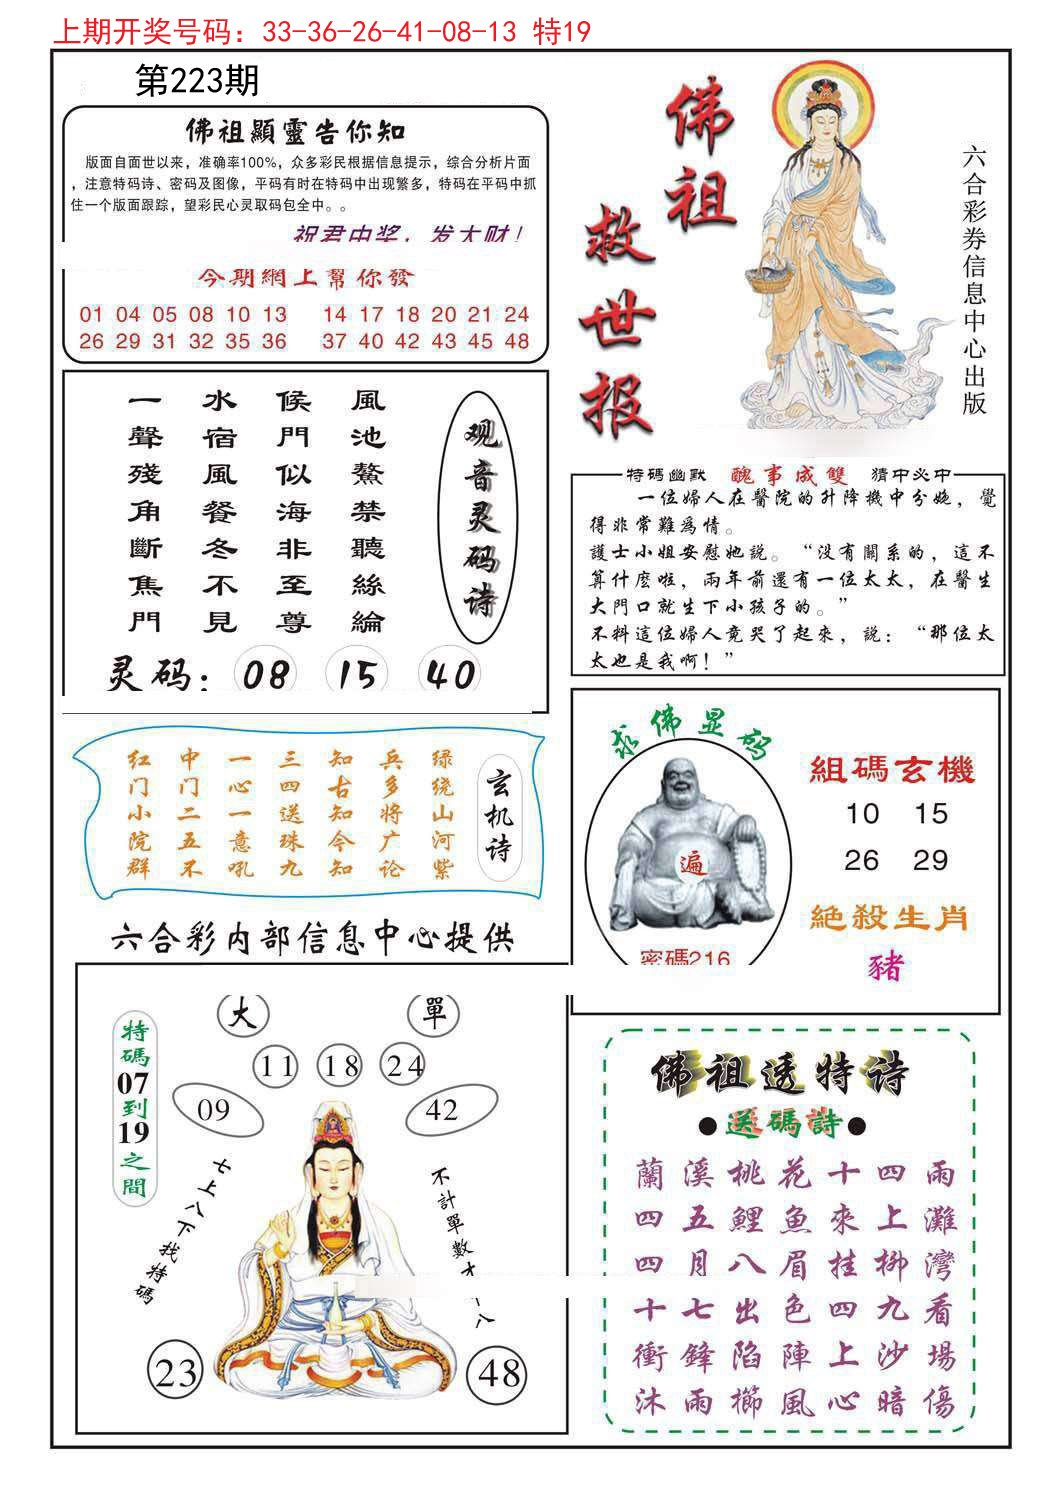 上期开奖号码：33-36-26-41-08-13 特19
第223期
佛祖顯靈告你知
版面自面世以来，准确率100%，众多彩民根据信息提示，综合分析片面
，注意特码诗、密码及图像，平码有时在特码中出现繁多，特码在平码中抓
住一个版面跟踪，望彩民心灵取码包全中。。
祝君中奖，发大财！
今期網上幫你發
01 04 05 08 10 13 14 17 18 20 21 24
26 29 31 32 35 36 37 40 42 43 45 48
佛祖
救世报
六合彩券信息中心出版
風池鰲禁聽絲綸
候門似海非至尊
水宿風餐冬不見
一聲殘角斷焦門
观音灵码诗
灵码：08 15 40
特碼幽默 醜事成雙 猜中必中
一位婦人在醫院的升降機中分娩，覺
得非常難為情。
護士小姐安慰她説。“没有關系的，這不
算什麽啦，兩年前還有一位太太，在醫生
大門口就生下小孩子的。”
不料這位婦人竟哭了起來，説：“那位太
太也是我啊！”
玄机诗
绿绕山河紫
兵多将广论
知古知今知
三四送珠九
一心一意吼
中门二五不
红门小院群
求佛显码
遍
密碼216
組碼玄機
10 15
26 29
絕殺生肖
豬
六合彩内部信息中心提供
大 單
11 18 24
09 42
特碼07到19之間
七上八下找特碼
不計單數
八
23 48
佛祖透特诗
●送碼詩●
蘭溪桃花十四雨
四五鯉魚來上灘
四月八眉挂柳灣
十七出色四九看
衝鋒陷陣上沙場
沐雨櫛風心暗傷